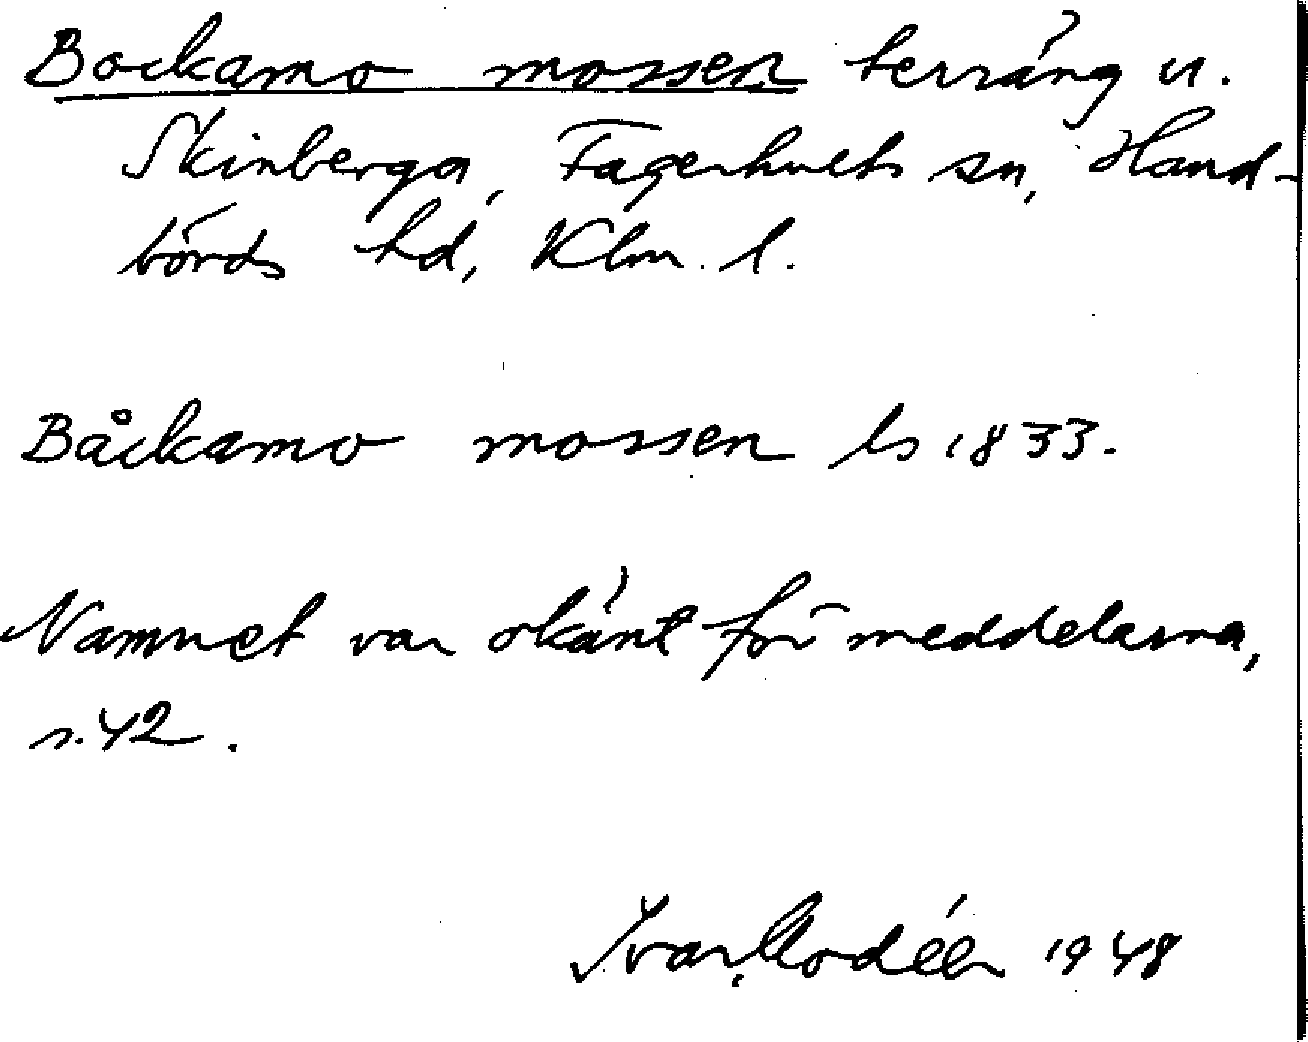 Bockamo mossen terräng u.
Skinberga, Fagerhults sn, Hand-
börds hd, Klm. l.
Båckamo mossen ls 1833.
Namnet var okänt för meddelarna,
s. 42.
Ivar Modéer 1948